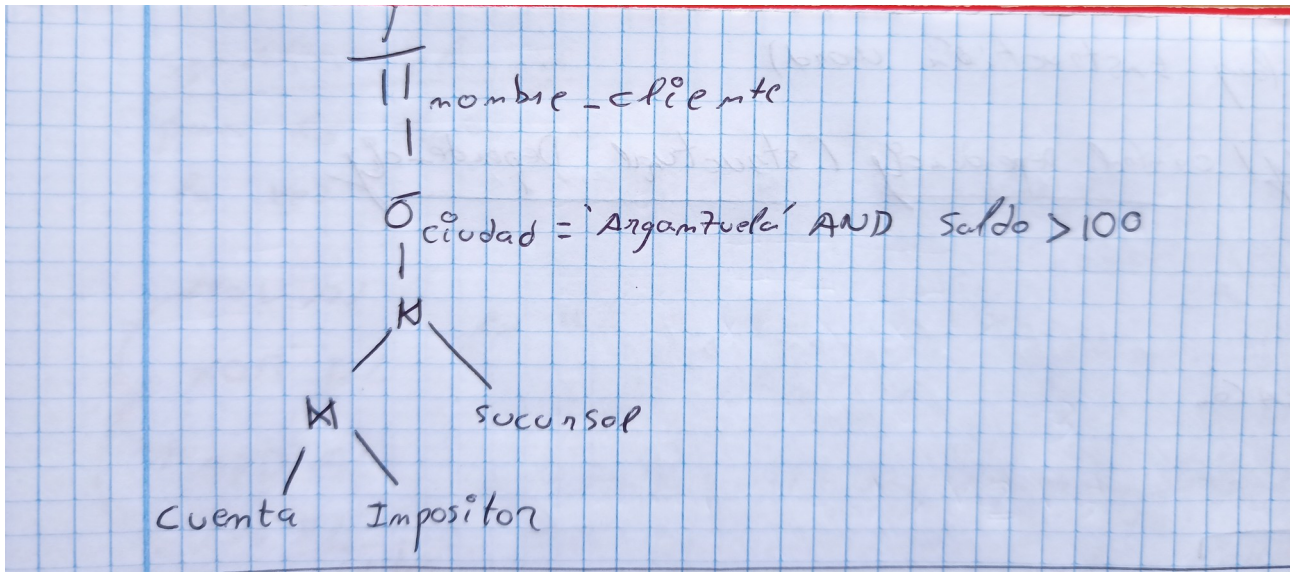 π nombre_cliente
σ ciudad = 'Arganzuela' AND Saldo > 100
⋈
⋈ sucursal
Cuenta Impositor